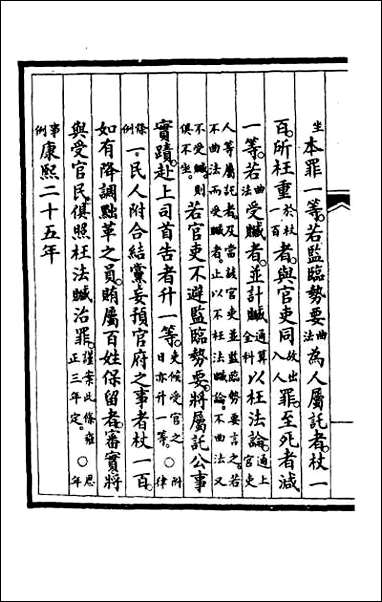 坐本罪一等。若監臨勢要曲法為人屬託者。杖一
百。所枉重於杖一百者。與官吏同故出入人罪。至死者減
一等。若曲法受贓者。並計贓通算全科以枉法論。通上官吏
人等屬託者及當該官吏並監臨勢要言之。若不曲法而受贓者止以不枉法贓論。不曲法又
不受贓則俱不坐。若官吏不避監臨勢要。將屬託公事
實蹟。赴上司首告者升一等。吏候受官之日亦升一等。○附律
條例一。民人附合結黨。妄預官府之事者杖一百。
如有降調黜革之員。賄屬百姓保留者。審實將
與受官民。俱照枉法贓治罪。謹案此條雍正三年定。○歷年
事例康熙二十五年